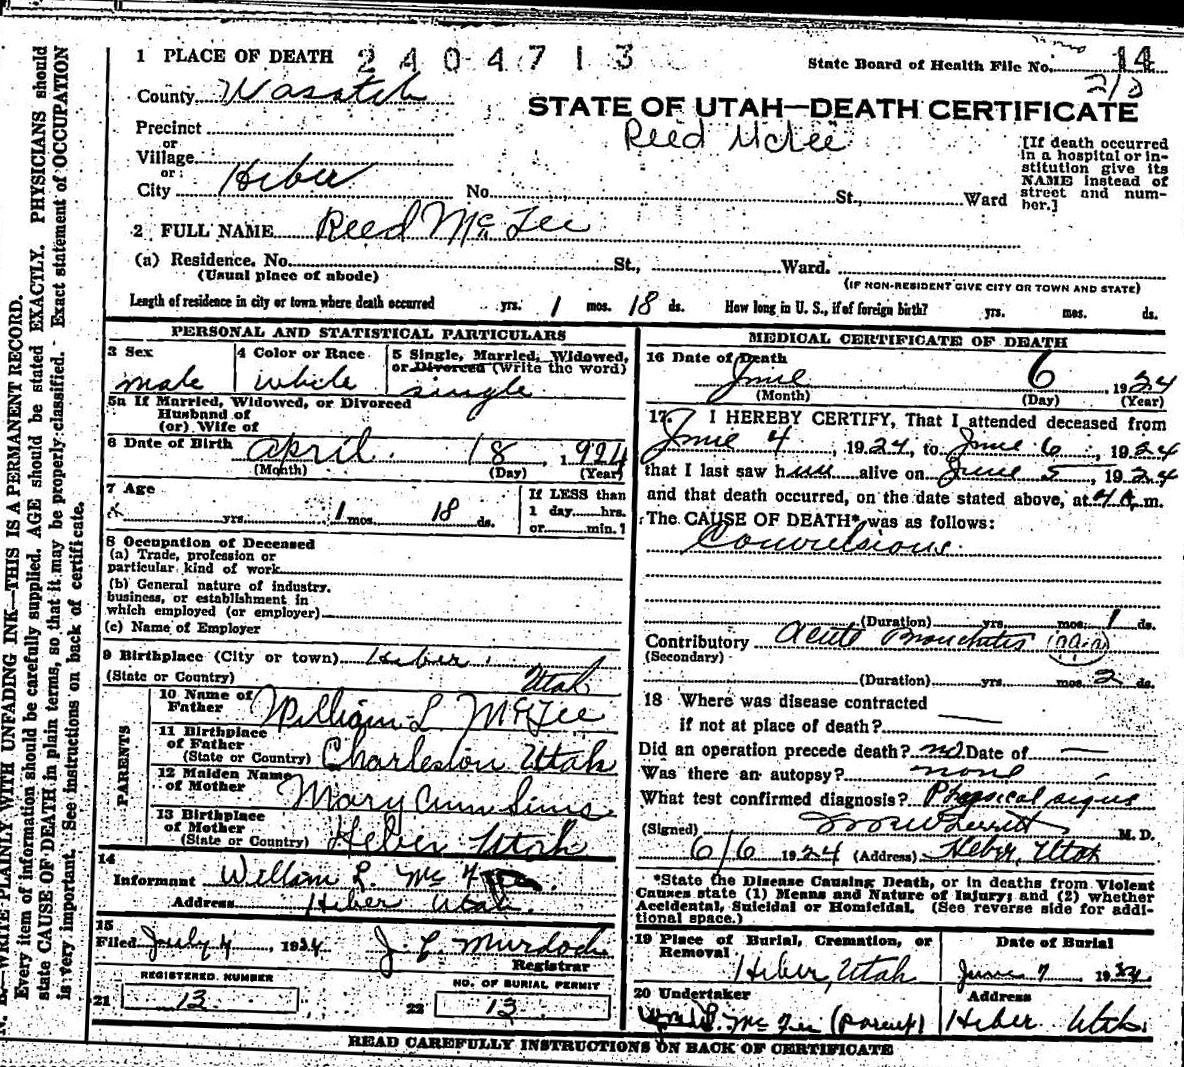 1 PLACE OF DEATH 2404713
State Board of Health File No. 14
County Wasatch
213
STATE OF UTAH—DEATH CERTIFICATE
Precinct
Reed McTee
or
Village
or
City Heber No. St., Ward
[If death occurred in a hospital or institution give its NAME instead of street and number.]
2 FULL NAME Reed Mc Tee
(a) Residence. No. St., Ward.
(Usual place of abode)
(IF NON-RESIDENT GIVE CITY OR TOWN AND STATE)
Length of residence in city or town where death occurred yrs. 1 mos. 18 ds. How long in U. S., if of foreign birth? yrs. mos. ds.
PERSONAL AND STATISTICAL PARTICULARS
3 Sex
male
4 Color or Race
white
5 Single, Married, Widowed,
or Divorced (Write the word)
single
5a If Married, Widowed, or Divorced
Husband of
(or) Wife of
6 Date of Birth April 18, 1924
(Month) (Day) (Year)
7 Age
yrs. 1 mos. 18 ds.
If LESS than
1 day hrs.
or min.?
8 Occupation of Deceased
(a) Trade, profession or
particular kind of work
(b) General nature of industry,
business, or establishment in
which employed (or employer)
(c) Name of Employer
9 Birthplace (City or town) Heber
(State or Country) Utah
PARENTS
10 Name of
Father William L McTee
11 Birthplace
of Father
(State or Country) Charleston Utah
12 Maiden Name
of Mother Mary Ann Sims
13 Birthplace
of Mother
(State or Country) Heber Utah
14
Informant William L. Mc
Address Heber Utah.
15
Filed July 4, 1924 J. L. Murdoch
Registrar
REGISTERED NUMBER
21 13
NO. OF BURIAL PERMIT
22 13
MEDICAL CERTIFICATE OF DEATH
16 Date of Death
June 6, 1924
(Month) (Day) (Year)
17 I HEREBY CERTIFY, That I attended deceased from
June 4, 1924, to June 6, 1924
that I last saw him alive on June 5, 1924
and that death occurred, on the date stated above, at 4 A. m.
The CAUSE OF DEATH* was as follows:
Convulsions.
(Duration) yrs. mos. 1 ds.
Contributory Acute Bronchitis
(Secondary)
(Duration) yrs. mos. 2 ds.
18 Where was disease contracted
if not at place of death? —
Did an operation precede death? no Date of —
Was there an autopsy? none
What test confirmed diagnosis? Physical signs
(Signed) M. D.
6/6 1924 (Address) Heber, Utah
*State the Disease Causing Death, or in deaths from Violent
Causes state (1) Means and Nature of Injury; and (2) whether
Accidental, Suicidal or Homicidal. (See reverse side for addi-
tional space.)
19 Place of Burial, Cremation, or
Removal
Heber, Utah
Date of Burial
June 7 1924
20 Undertaker
Mc Tee (parent)
Address
Heber Utah
READ CAREFULLY INSTRUCTIONS ON BACK OF CERTIFICATE
N. B.—WRITE PLAINLY WITH UNFADING INK—THIS IS A PERMANENT RECORD.
Every item of information should be carefully supplied. AGE should be stated EXACTLY. PHYSICIANS should
state CAUSE OF DEATH in plain terms, so that it may be properly classified. Exact statement of OCCUPATION
is very important. See instructions on back of certificate.